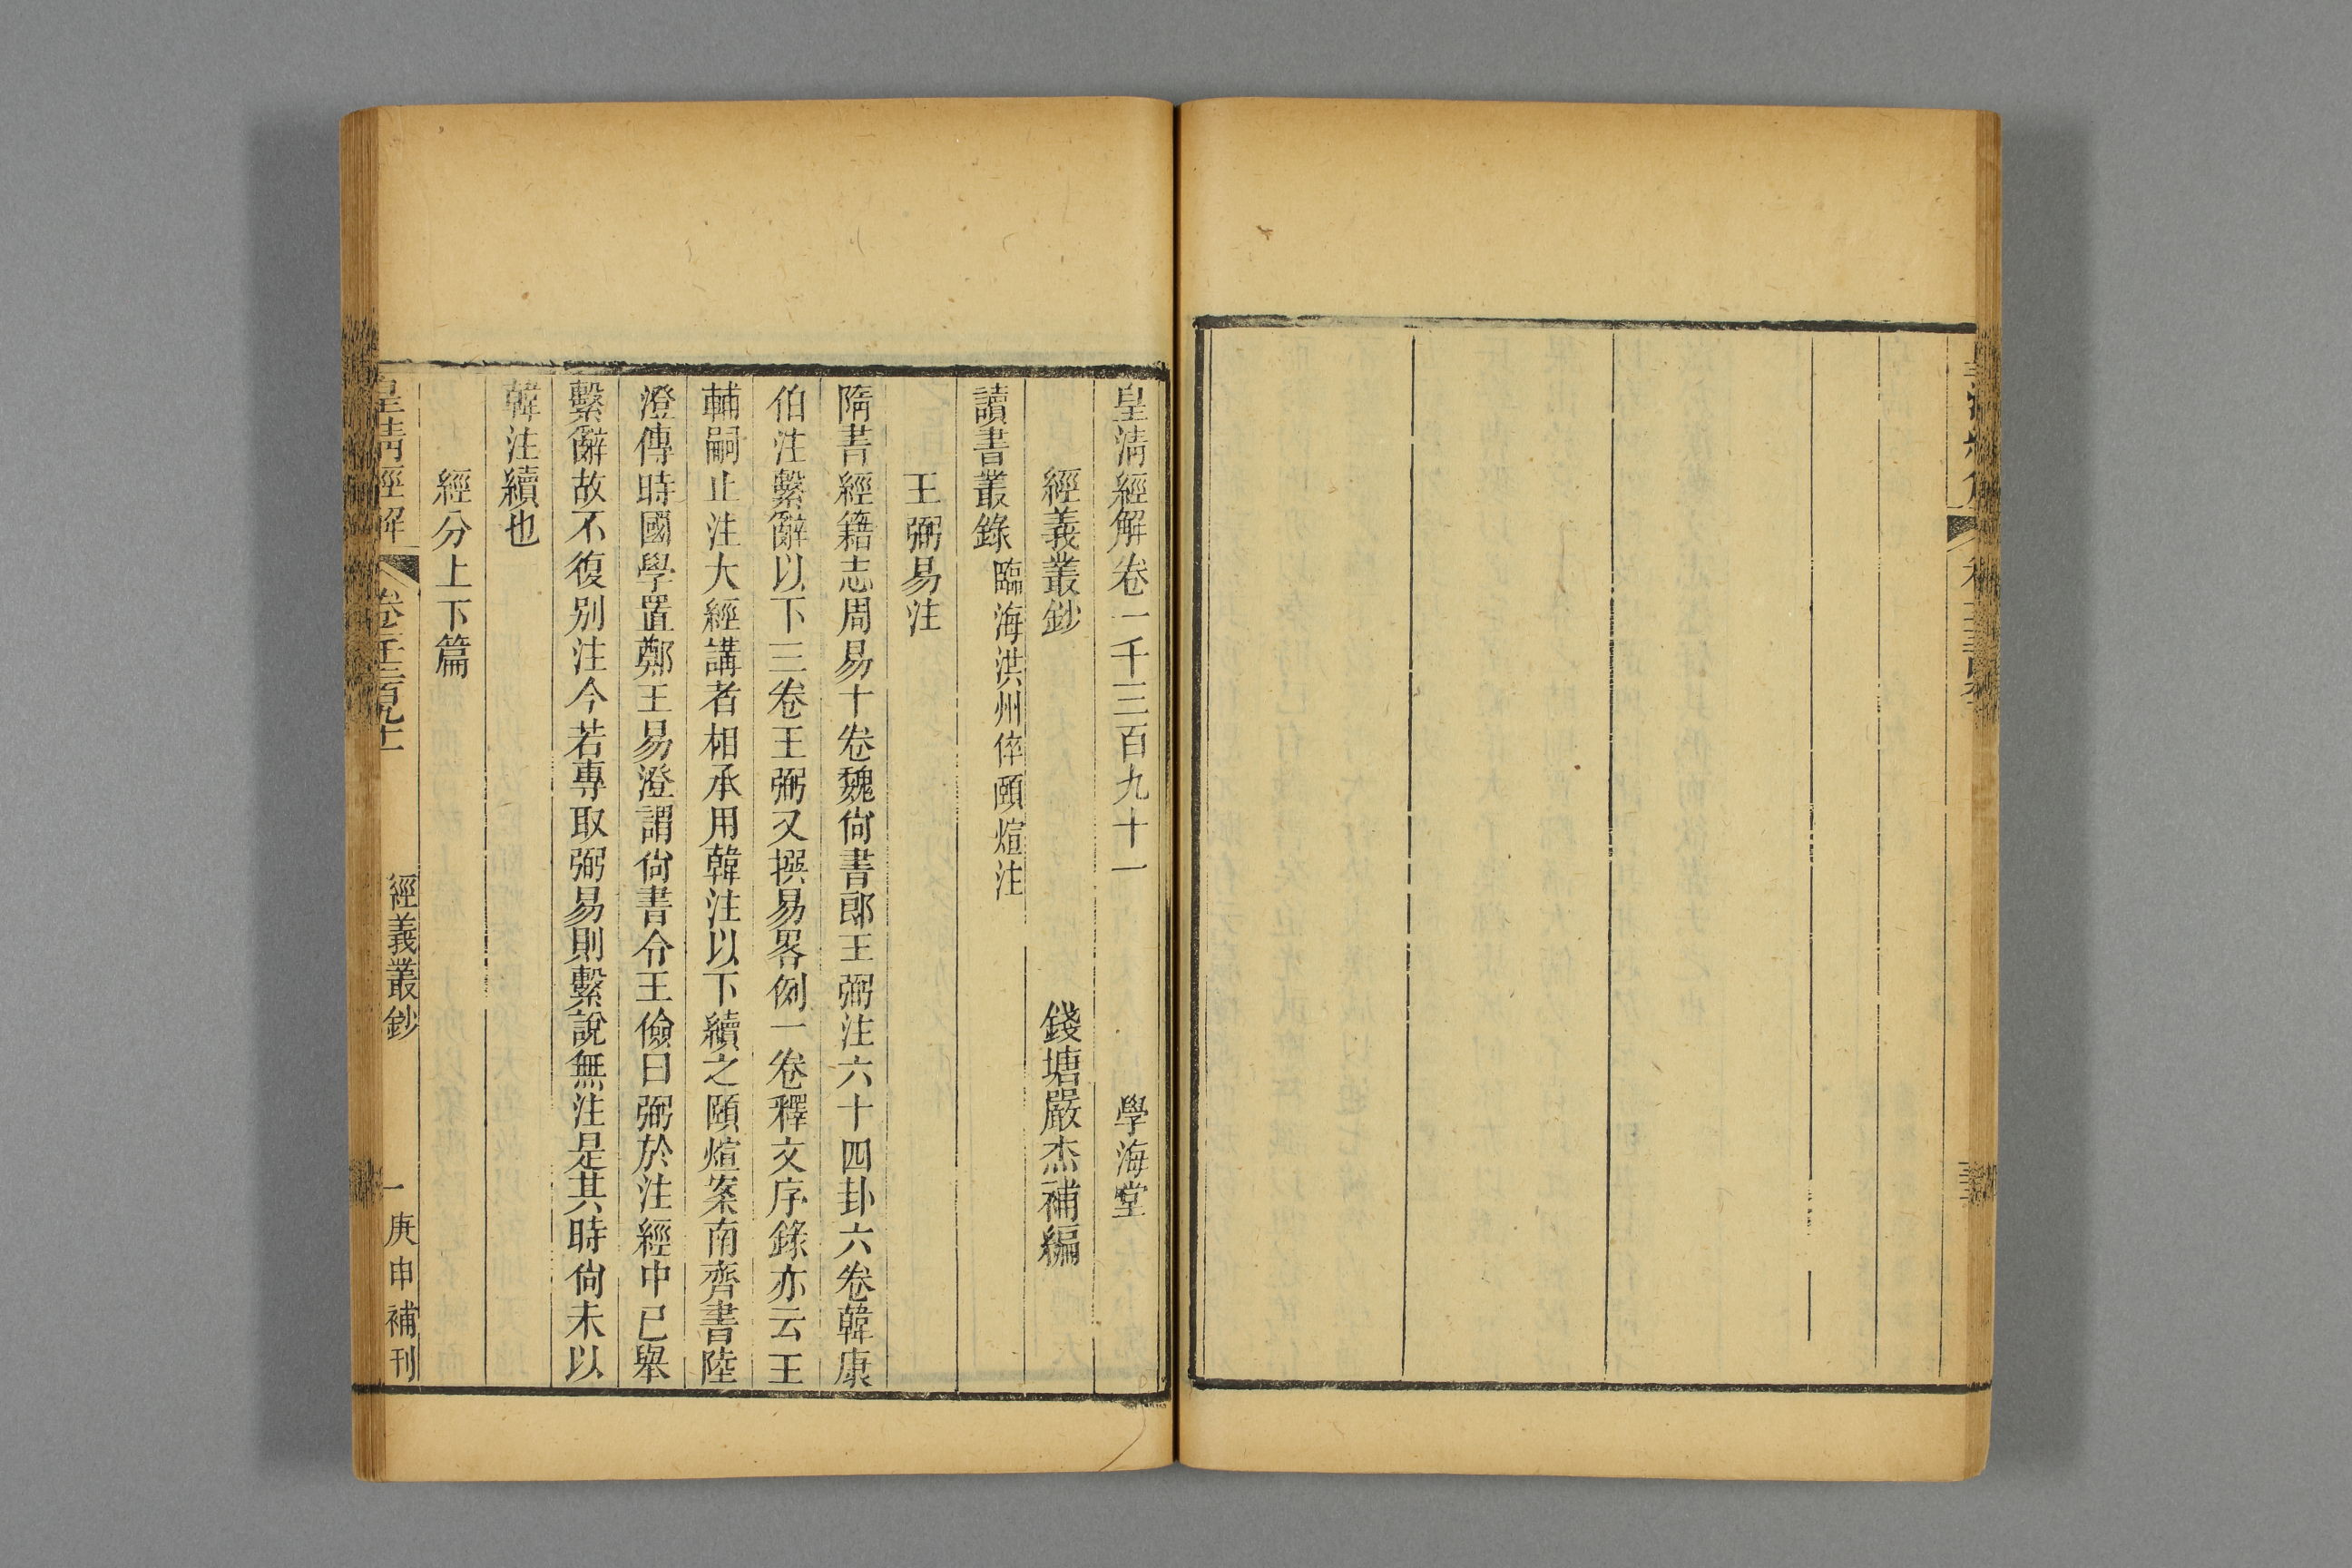 皇清經解卷一千三百九十一 學海堂
經義叢鈔 錢塘嚴杰補編
讀書叢錄 臨海洪州倅頤煊注
王弼易注
隋書經籍志周易十卷魏尙書郎王弼注六十四卦六卷韓康
伯注繫辭以下三卷王弼又撰易畧例一卷釋文序錄亦云王
輔嗣止注大經講者相承用韓注以下續之頤煊案南齊書陸
澄傳時國學置鄭王易澄謂尙書令王儉曰弼於注經中已舉
繫辭故不復别注今若專取弼易則繫說無注是其時尙未以
韓注續也
經分上下篇
皇清經解 卷千三百九十一 經義叢鈔 一 庚申補刊